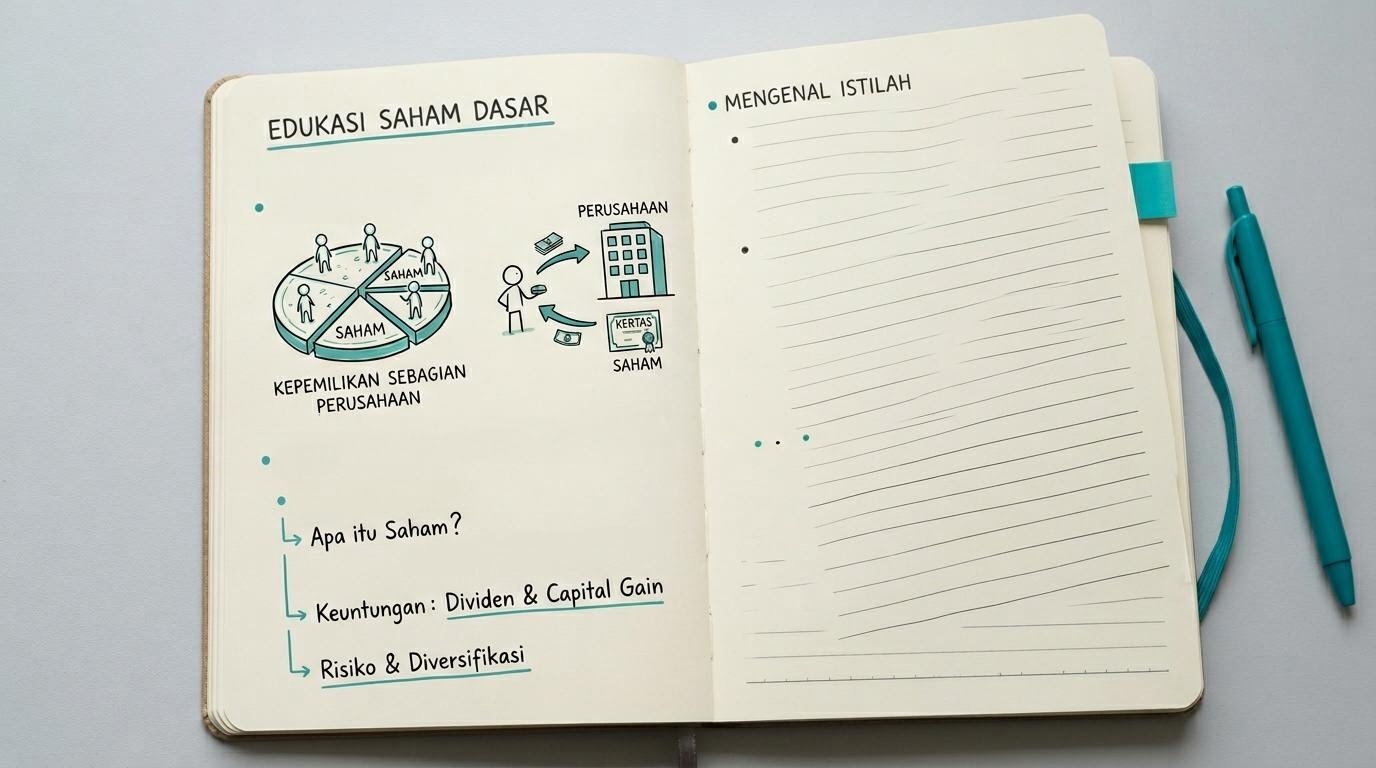 EDUKASI SAHAM DASAR
SAHAM
SAHAM
KEPEMILIKAN SEBAGIAN
PERUSAHAAN
PERUSAHAAN
KERTAS
SAHAM
Apa itu Saham?
Keuntungan: Dividen & Capital Gain
Risiko & Diversifikasi
MENGENAL ISTILAH